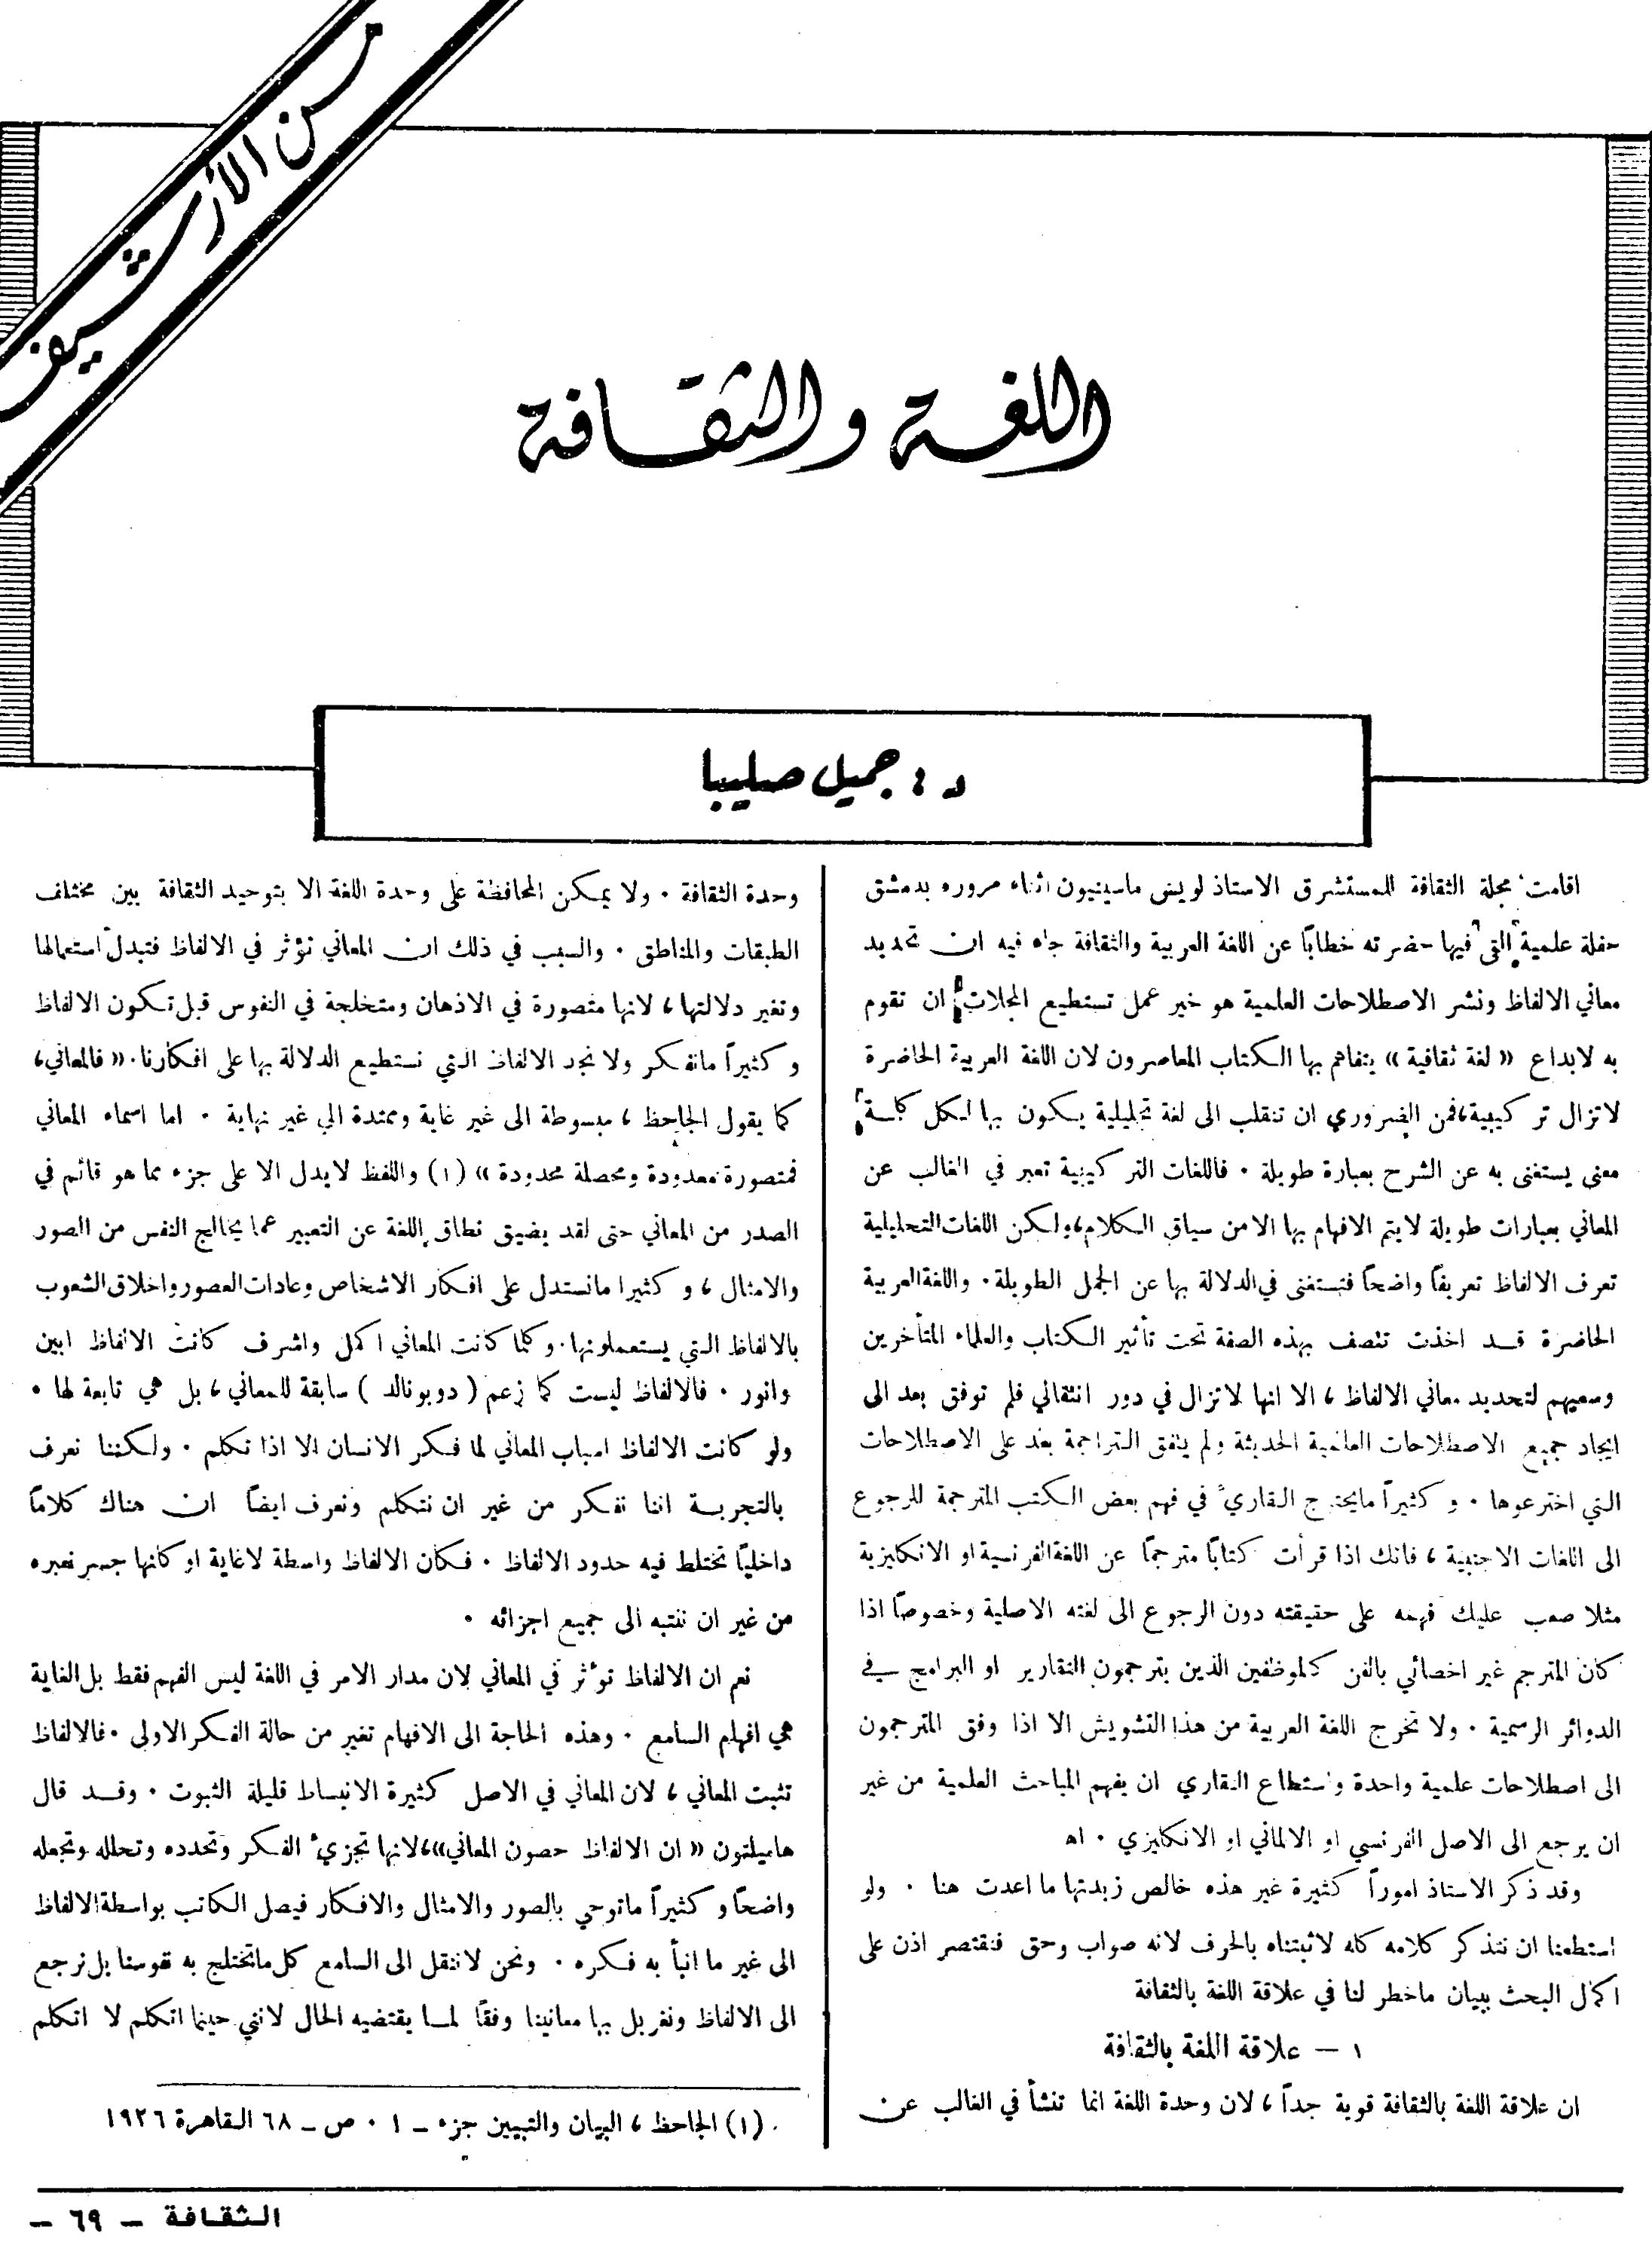 من الأرشيف
اللغة والثقافة
د. جميل صليبا
اقامت مجلة الثقافة للمستشرق الاستاذ لويس ماسينيون اثناء مروره بدمشق
حفلة علمية القى فيها حضرته خطاباً عن اللغة العربية والثقافة جاء فيه ان تحديد
معاني الالفاظ ونشر الاصطلاحات العلمية هو خير عمل تستطيع المجلات ان تقوم
به لابداع « لغة ثقافية » يتفاهم بها الكتاب المعاصرون لان اللغة العربية الحاضرة
لاتزال تركيبية، فمن الضروري ان تنقلب الى لغة تحليلية يكون بها لكل كلمة
معنى يستغنى به عن الشرح بعبارة طويلة . فاللغات التركيبية تعبر في الغالب عن
المعاني بعبارات طويلة لايتم الافهام بها الا من سياق الكلام، ولكن اللغات التحليلية
تعرف الالفاظ تعريفاً واضحاً فتستغنى في الدلالة بها عن الجمل الطويلة . واللغة العربية
الحاضرة قد اخذت تتصف بهذه الصفة تحت تأثير الكتاب والعلماء المتأخرين
وسعيهم لتحديد معاني الالفاظ ، الا انها لاتزال في دور انتقالي فلم توفق بعد الى
ايجاد جميع الاصطلاحات العلمية الحديثة ولم يتفق التراجمة بعد على الاصطلاحات
التي اخترعوها . وكثيراً مايحتاج القاريء في فهم بعض الكتب المترجمة للرجوع
الى اللغات الاجنبية ، فانك اذا قرأت كتاباً مترجماً عن اللغة الفرنسية او الانكليزية
مثلا صعب عليك فهمه على حقيقته دون الرجوع الى لغته الاصلية وخصوصاً اذا
كان المترجم غير اخصائي بالفن كالموظفين الذين يترجمون التقارير او البرامج في
الدوائر الرسمية . ولا تخرج اللغة العربية من هذا التشويش الا اذا وفق المترجمون
الى اصطلاحات علمية واحدة واستطاع القاري ان يفهم المباحث العلمية من غير
ان يرجع الى الاصل الفرنسي او الالماني او الانكليزي . اه
وقد ذكر الاستاذ اموراً كثيرة غير هذه خالص زبدتها ما اعدت هنا . ولو
استطعنا ان نتذكر كلامه كله لاثبتناه بالحرف لانه صواب وحق فنقتصر اذن على
اكمال البحث ببيان ماخطر لنا في علاقة اللغة بالثقافة
١ - علاقة اللغة بالثقافة
ان علاقة اللغة بالثقافة قوية جداً ، لان وحدة اللغة انما تنشأ في الغالب عن
وحدة الثقافة . ولا يمكن المحافظة على وحدة اللغة الا بتوحيد الثقافة بين مختلف
الطبقات والمناطق . والسبب في ذلك ان المعاني تؤثر في الالفاظ فتبدل استعمالها
وتغير دلالتها ، لانها متصورة في الاذهان ومتخلجة في النفوس قبل تكون الالفاظ
وكثيراً مانفكر ولا نجد الالفاظ التي نستطيع الدلالة بها على افكارنا . « فالمعاني ،
كما يقول الجاحظ ، مبسوطة الى غير غاية وممتدة الي غير نهاية . اما اسماء المعاني
فمتصورة معدودة ومحصلة محدودة » (١) واللفظ لايدل الا على جزء مما هو قائم في
الصدر من المعاني حتى لقد يضيق نطاق اللغة عن التعبير عما يخالج النفس من الصور
والامثال ، وكثيرا مانستدل على افكار الاشخاص وعادات العصور واخلاق الشعوب
بالالفاظ التي يستعملونها . وكلما كانت المعاني اكمل واشرف كانت الالفاظ ابين
وانور . فالالفاظ ليست كما زعم ( دوبونالد ) سابقة للمعاني ، بل هي تابعة لها .
ولو كانت الالفاظ اسباب المعاني لما فكر الانسان الا اذا تكلم . ولكننا نعرف
بالتجربة اننا نفكر من غير ان نتكلم ونعرف ايضاً ان هناك كلاماً
داخلياً تختلط فيه حدود الالفاظ . فكان الالفاظ واسطة لاغاية او كانها جسر نعبره
من غير ان ننتبه الى جميع اجزائه .
نعم ان الالفاظ تؤثر في المعاني لان مدار الامر في اللغة ليس الفهم فقط بل الغاية
هي افهام السامع . وهذه الحاجة الى الافهام تغير من حالة الفكر الاولى . فالالفاظ
تثبت المعاني ، لان المعاني في الاصل كثيرة الانبساط قليلة الثبوت . وقد قال
هاميلتون « ان الالفاظ حصون المعاني »، لانها تجزيء الفكر وتحدده وتحلله وتجعله
واضحاً وكثيراً ماتوحي بالصور والامثال والافكار فيصل الكاتب بواسطة الالفاظ
الى غير ما انبأ به فكره . ونحن لا ننقل الى السامع كل ماتختلج به نفوسنا بل نرجع
الى الالفاظ ونغربل بها معانينا وفقاً لما يقتضيه الحال لانني حينما اتكلم لا اتكلم
(١) الجاحظ ، البيان والتبيين جزء - ١ . ص - ٦٨ القاهرة ١٩٢٦
الثقافة - ٦٩ -